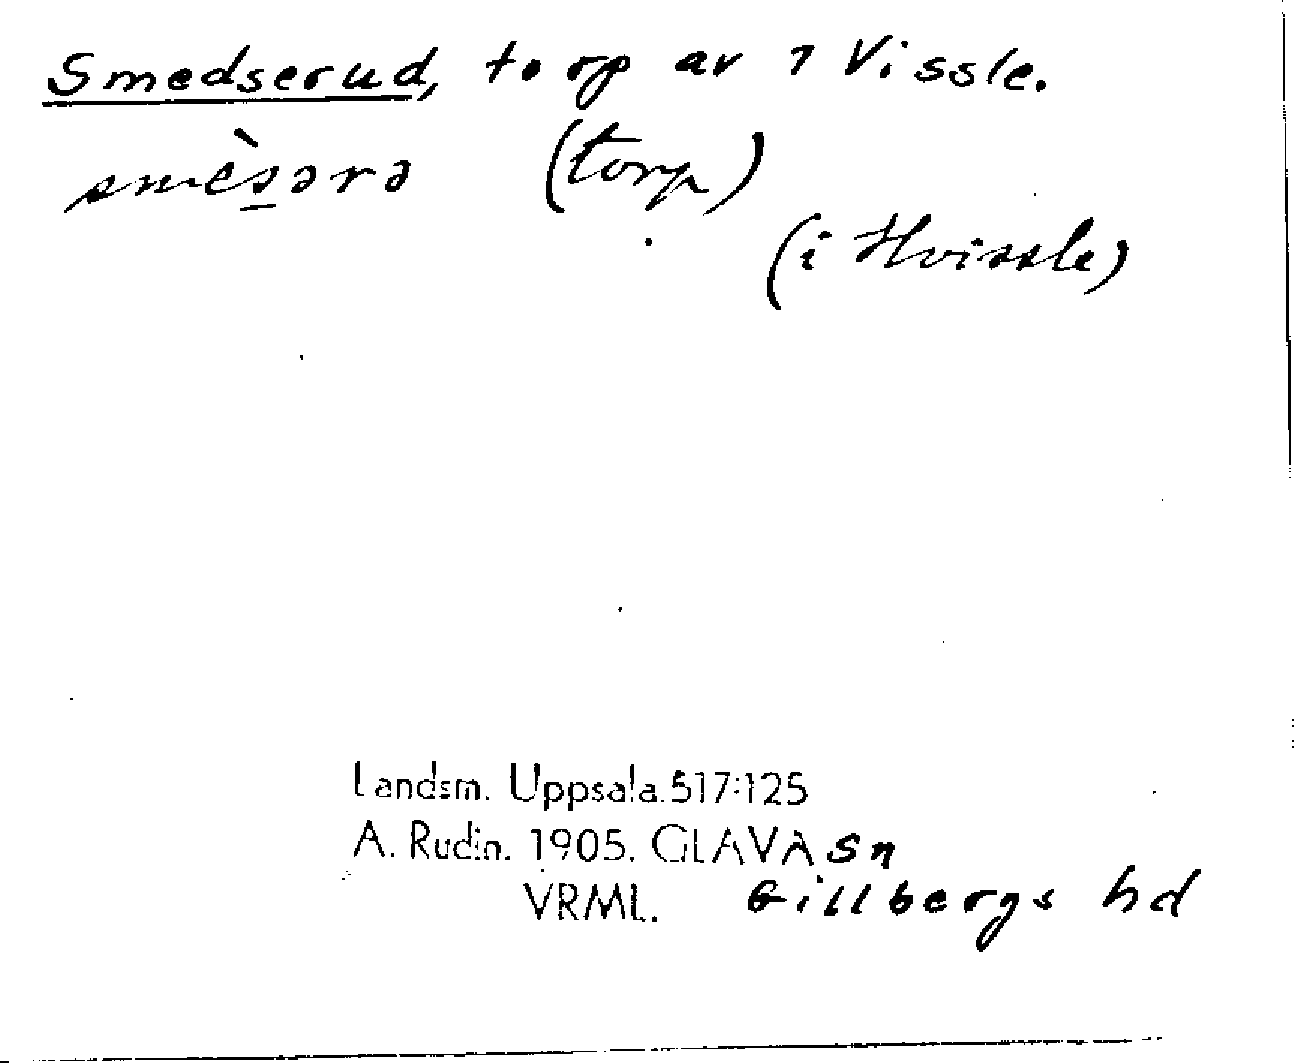 Smedserud, torp av 1 Vissle.
smès̱ərə (torp)
(i Hvissle)
Landsm. Uppsala. 517:125
A. Rudin. 1905. GLAVA sn
VRML. Gillbergs hd